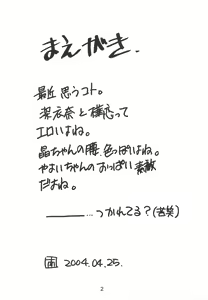 まえがき.
最近思うコト。
潔衣奈と横恋って
エロいよね。
晶ちゃんの腰、色っぽいよね。
やよいちゃんのおっぱい素敵
だよね。
――…つかれてる?(苦笑)
2004.04.25.
2